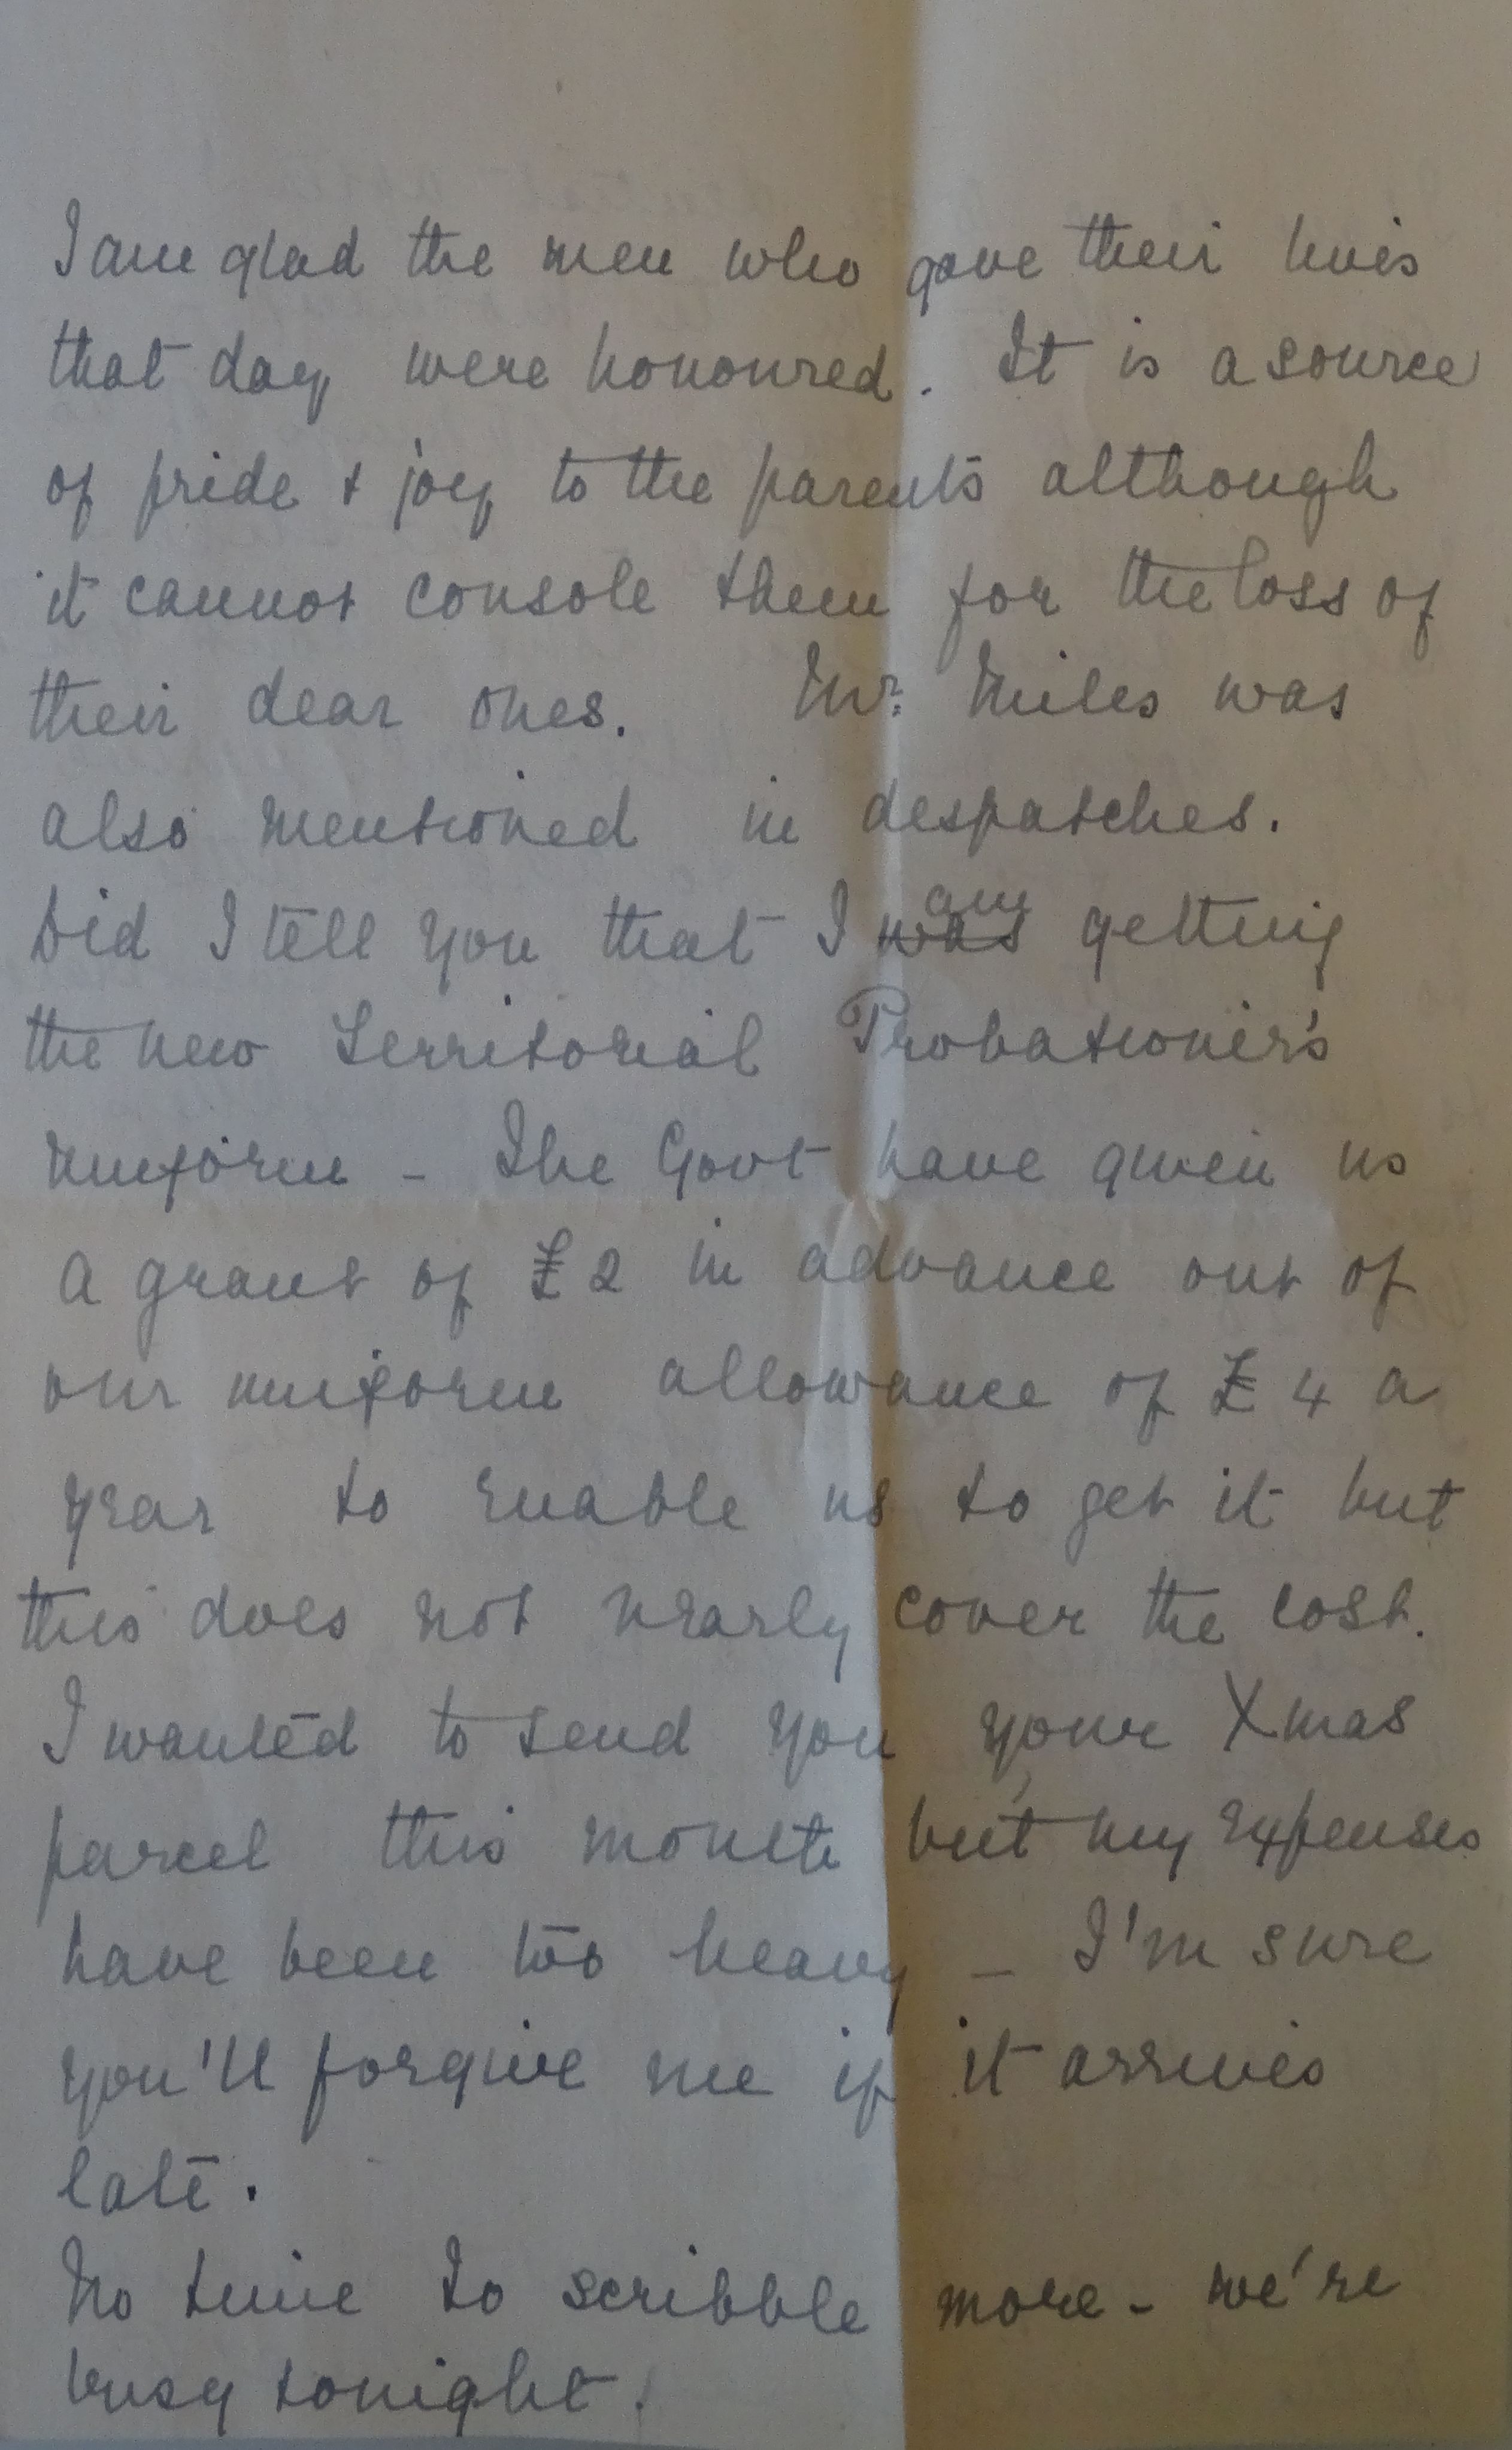 I am glad the men who gave their lives
that day were honoured. It is a source
of pride & joy to the parents although
it cannot console them for the loss of
their dear ones. Mr. Miles was
also mentioned in despatches.
Did I tell you that I was am getting
the new Territorial Probationer's
uniform - The Govt have given us
a grant of £2 in advance out of
our uniform allowance of £4 a
year to enable us to get it but
this does not nearly cover the cost.
I wanted to send you your Xmas
parcel this month, but my expenses
have been too heavy - I'm sure
you'll forgive me if it arrives
late.
No time to scribble more - we're
busy tonight.